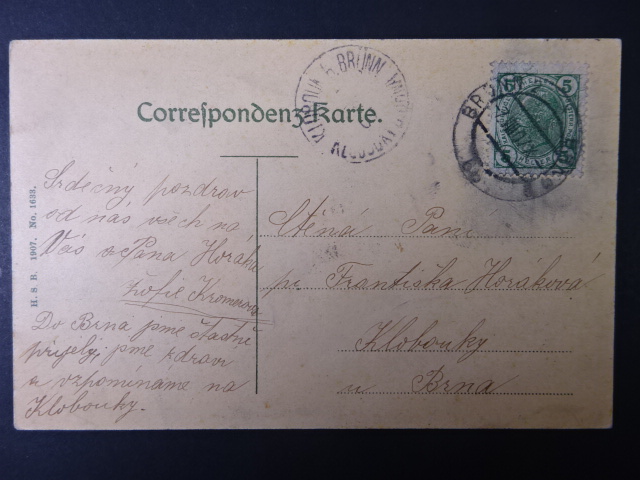 Correspondenz-Karte.
KLOBOUK B. BRÜNN
5
5
H. S. B. 1907. No. 1633.
Srdečný pozdrav
od nás všech na
Vás a Pana Horáka
Žofie Kromerova
Do Brna jsme šťastně
přijely, jsme zdravi
a vzpomínáme na
Klobouky.
Ctěná Paní
pí Františka Horáková
Klobouky
u Brna